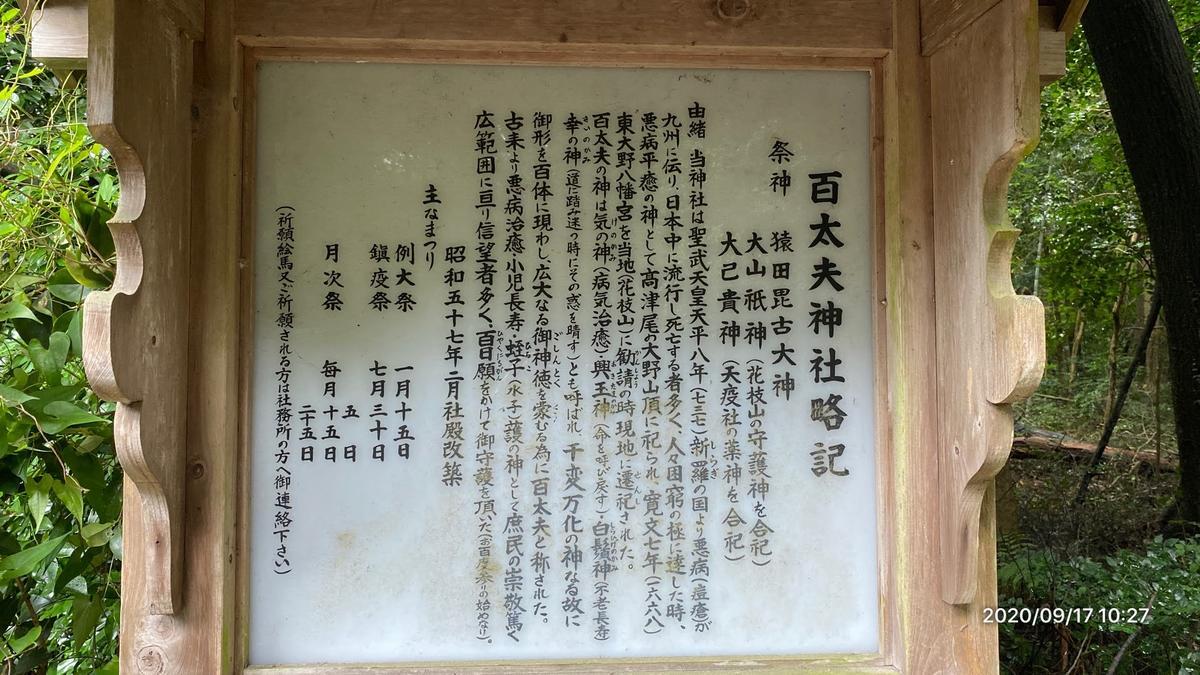 百太夫神社略記
祭神 猿田毘古大神
大山祇神(花枝山の守護神を合祀)
大己貴神(天疫社の薬神を合祀)
由緒 当神社は聖武天皇天平八年(七三七)新羅の国より悪病(痘瘡)が
九州に伝り、日本中に流行し死亡する者多く、人々困窮の極に達した時、
悪病平癒の神として高津尾の大野山頂に祀られ、寛文七年(六六八)
東大野八幡宮を当地(花枝山)に勧請の時現地に遷祀された。
百太夫の神は気の神(病気治癒)興玉神(命を呼び戻す)白鬚神(不老長寿)
幸の神(道に踏み迷う時にその惑を晴す)とも呼ばれ、千変万化の神なる故に
御形を百体に現わし、広大なる御神徳を蒙むる為に百太夫と称された。
古来より悪病治癒・小児長寿・蛭子(水子)護の神として庶民の崇敬篤く
広範囲に亘り信望者多く、百日願をかけて御守護を頂いた(お百度参りの始めなり)。
昭和五十七年二月社殿改築
主なまつり
例大祭 一月十五日
鎮疫祭 七月三十日
月次祭 毎月 五日
十五日
二十五日
(祈願絵馬又ご祈願される方は社務所の方へ御連絡下さい)
2020/09/17 10:27